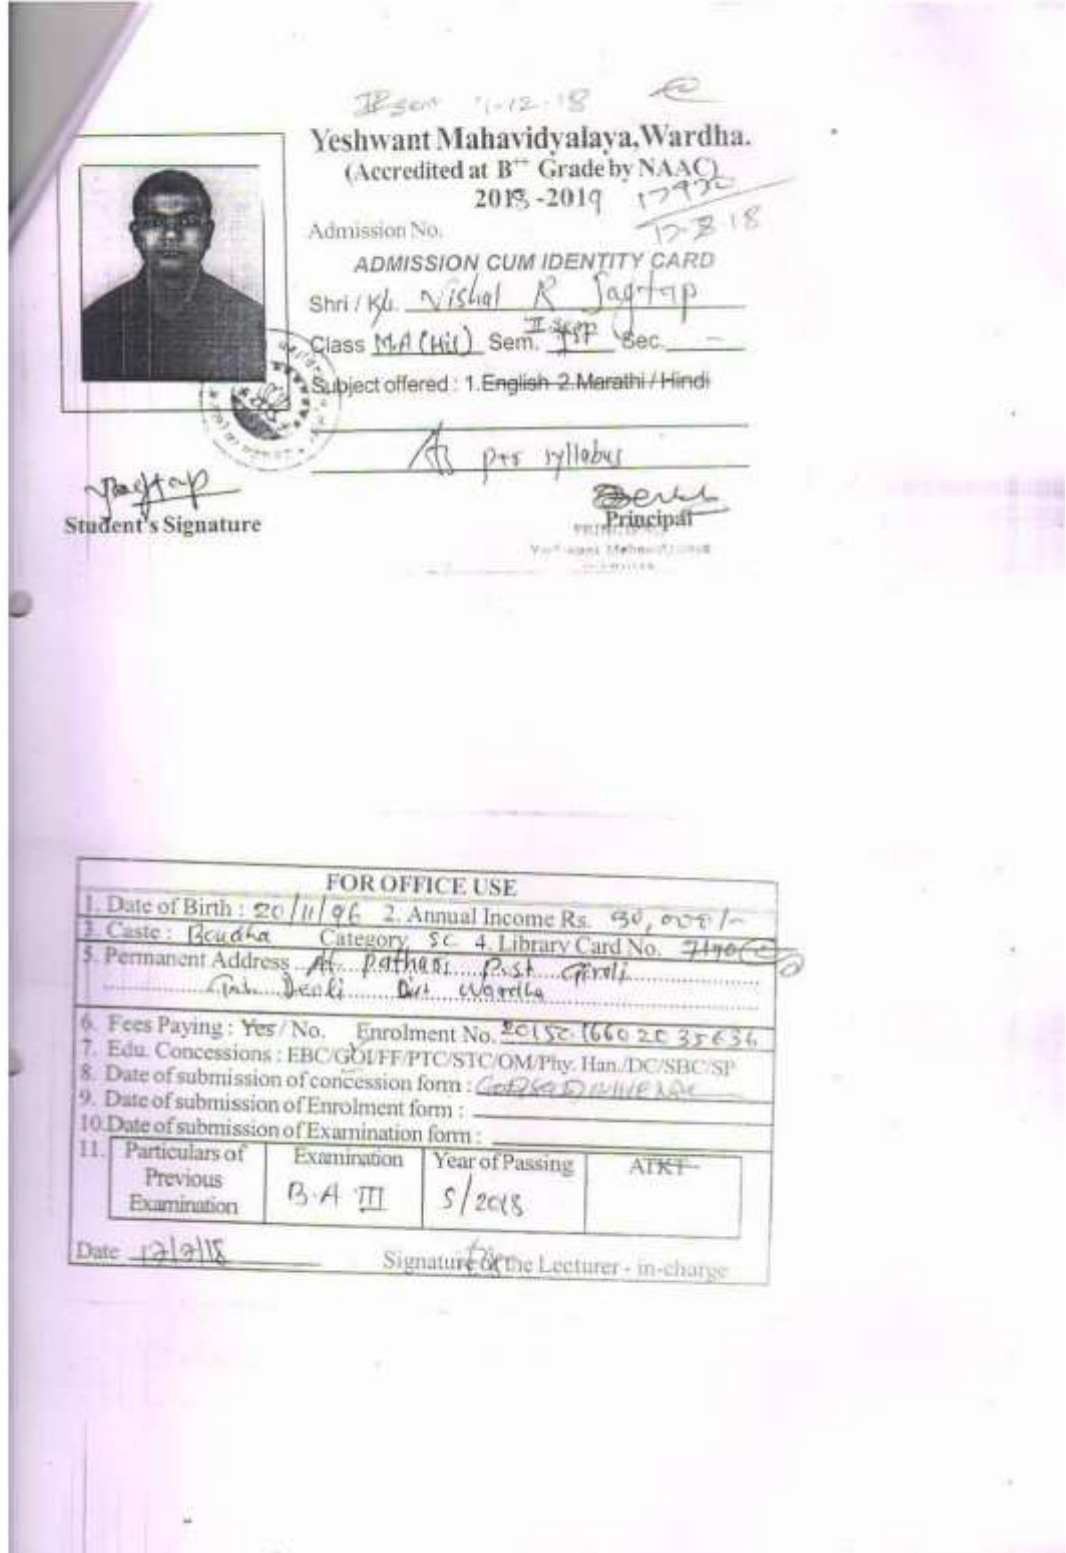 II sem 11-12-18
Yeshwant Mahavidyalaya,Wardha.
(Accredited at B++ Grade by NAAC)
2018 -2019 17930
Admission No. 17-8 18
ADMISSION CUM IDENTITY CARD
Shri / Ku. Vishal R Jagtap
Class M.A (His) Sem. II sem Ist Sec. -
Subject offered : 1.English 2.Marathi / Hindi
As per syllabus
Jagtap
Student's Signature
Principal
FOR OFFICE USE
1. Date of Birth : 20/11/96 2. Annual Income Rs. 30,000/-
3. Caste : Boudha Category SC 4. Library Card No.
5. Permanent Address At. Post Giroli
Deoli Dist Wardha
6. Fees Paying : Yes / No. Enrolment No.
7. Edu. Concessions : EBC/GOI/FF/PTC/STC/OM/Phy. Han./DC/SBC/SP
8. Date of submission of concession form :
9. Date of submission of Enrolment form :
10.Date of submission of Examination form :
11. Particulars of Previous Examination Examination Year of Passing ATKT
B.A III 5/2018
Date
Signature of the Lecturer - in-charge